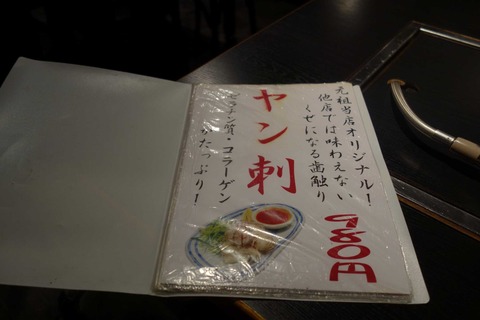 元祖当店オリジナル！
他店では味わえない
くせになる歯触り
ヤン刺
ゼラチン質・コラーゲン
がたっぷり！
980円